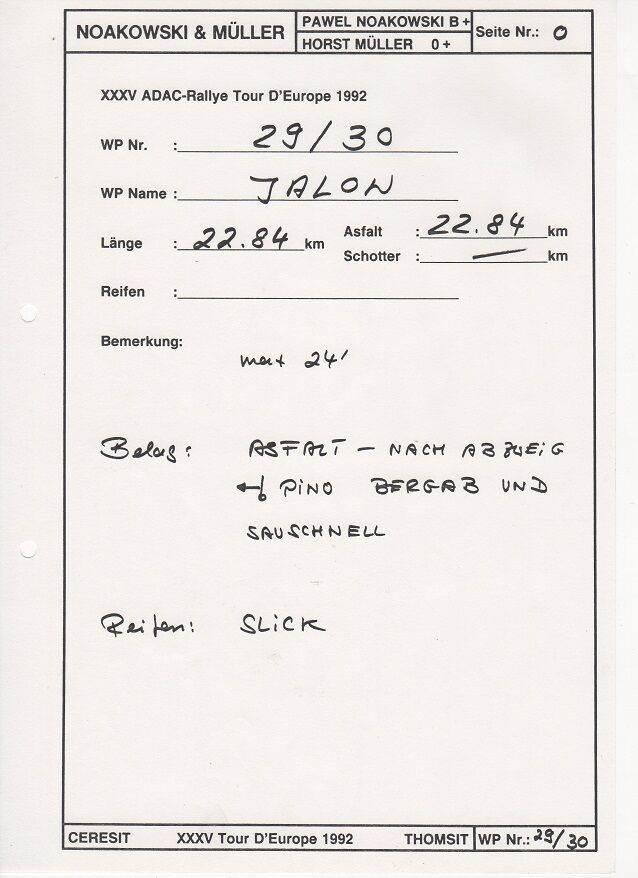 NOAKOWSKI & MÜLLER
PAWEL NOAKOWSKI B +
HORST MÜLLER 0 +
Seite Nr.: 0
XXXV ADAC-Rallye Tour D'Europe 1992
WP Nr. : 29/30
WP Name : JALON
Länge : 22.84 km
Asfalt : 22.84 km
Schotter : — km
Reifen :
Bemerkung:
max 24'
Belag: ASFALT – NACH ABZWEIG
PINO BERGAB UND
SAUSCHNELL
Reifen: SLICK
CERESIT XXXV Tour D'Europe 1992 THOMSIT WP Nr.: 29/30